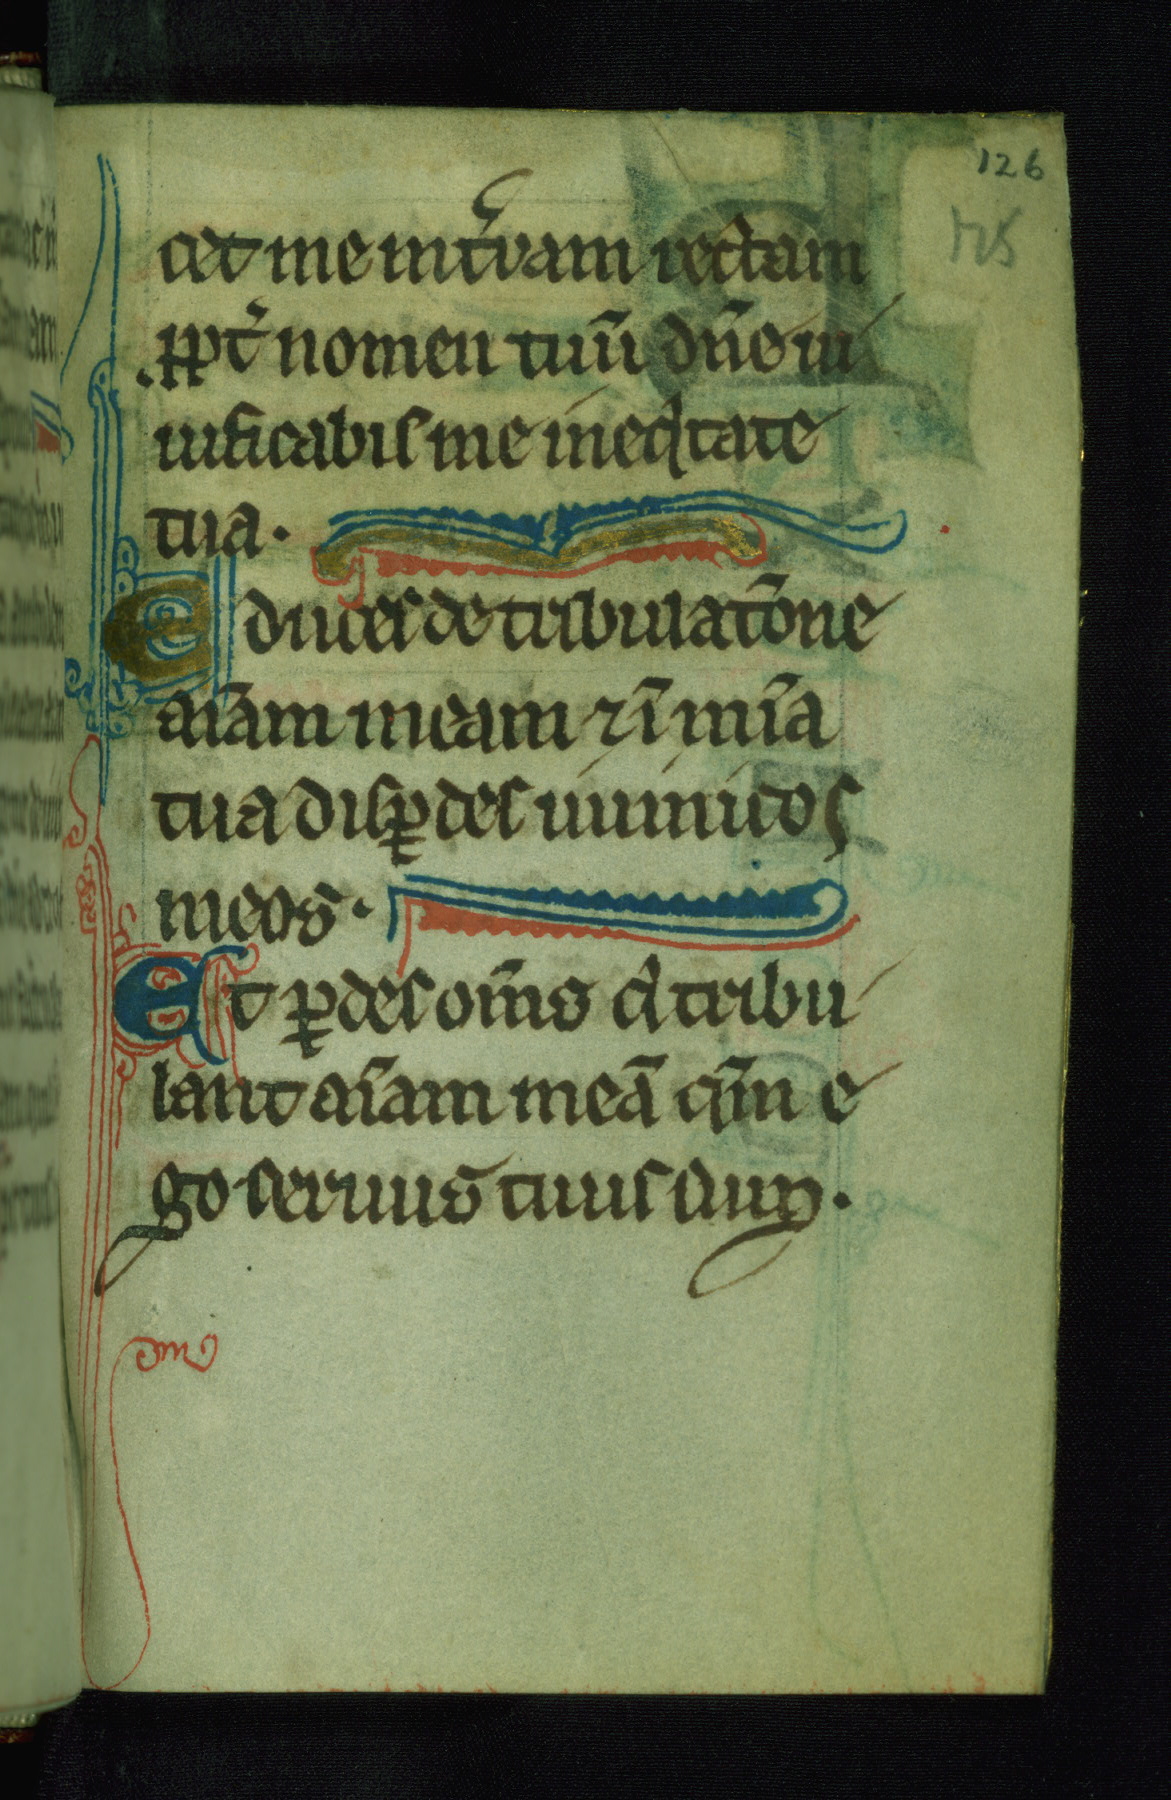 126
125
cet me in tʳram rectam
ꝓpt̾ nomen tuū dn̄e ui
uificabis me in eqͥtate
tua.
Educes de tribulatōne
aīam meam ⁊ ī mīa
tua disꝑdes inimicos
meos.
Et ꝑdes om̄s qͥ tribu
lant aīam meā qm̄ e
go seruus tuus sum.